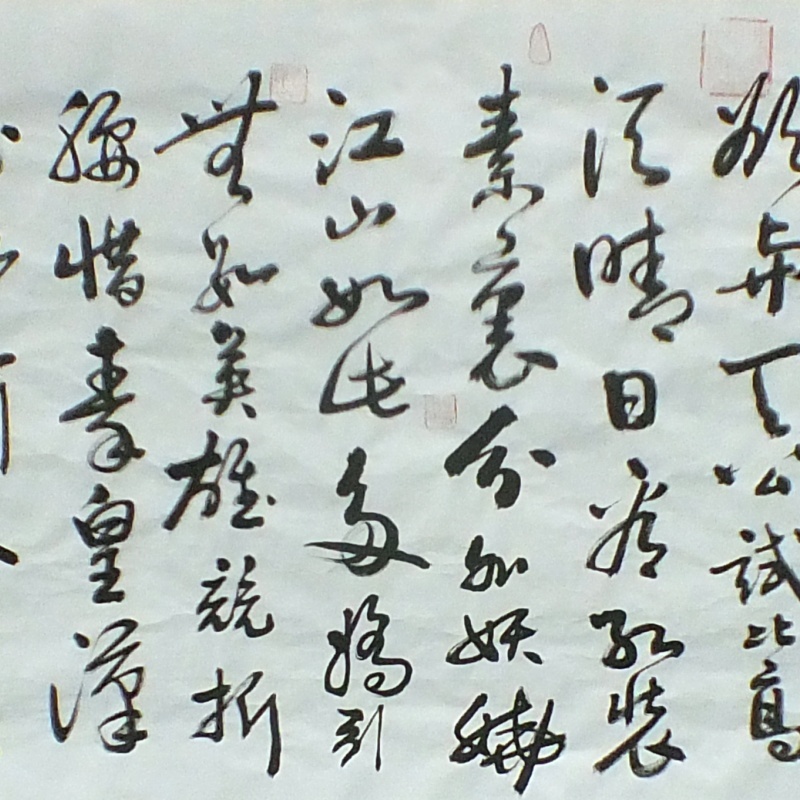 欲與天公試比高
須晴日看紅裝
素裹分外妖嬈
江山如此多嬌引
無數英雄競折
腰惜秦皇漢